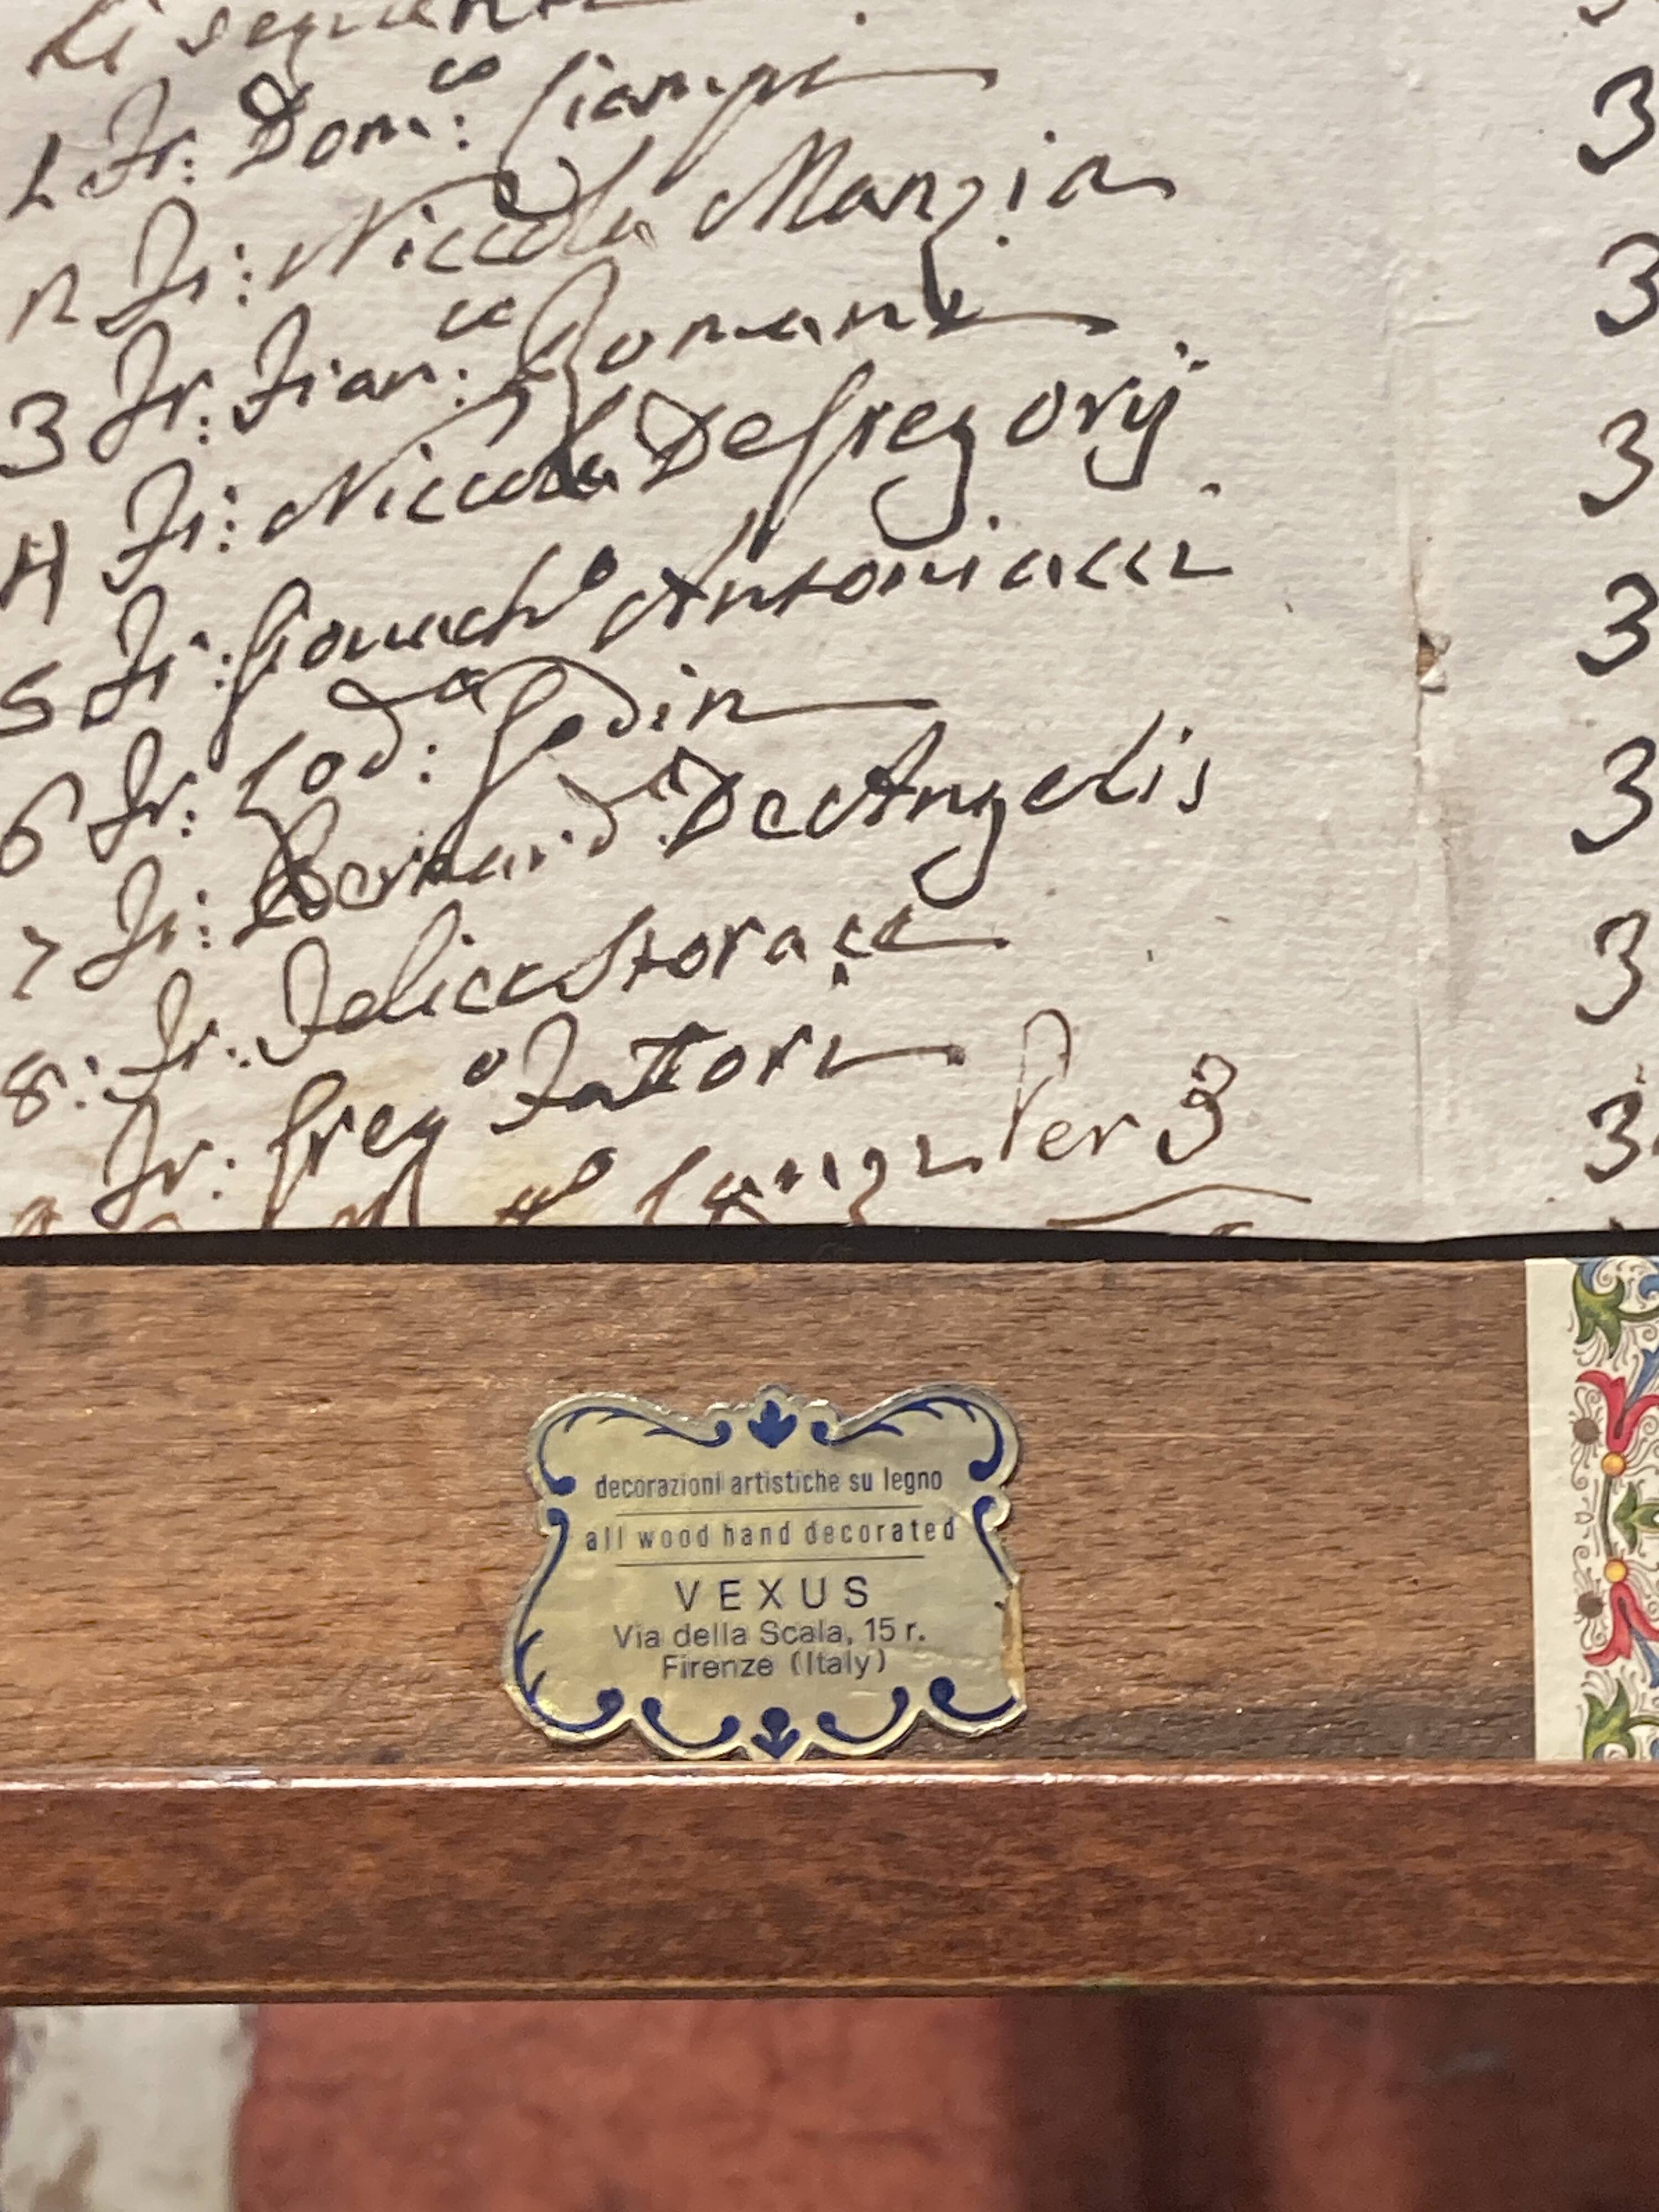 Li seguenti
1 Fr: Dom:co Ciampi 3
2 Fr: Niccola Manzia 3
3 Fr. Fran:co Romani 3
4 Fr: Niccola DeGregorij 3
5 Fr: Antoniacci 3
6 Fr: Lod: Godin 3
7 Fr: Bernard DeAngelis 3
8: Fr: Felice Storace 3
Fr: Greg.o Fattori Per 3
decorazioni artistiche su legno
all wood hand decorated
VEXUS
Via della Scala, 15 r.
Firenze (Italy)